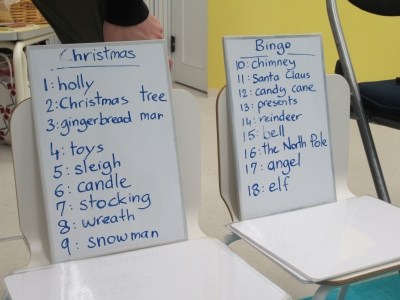 Christmas
1: holly
2: Christmas tree
3: gingerbread man
4: toys
5: sleigh
6: candle
7: stocking
8: wreath
9: snowman
Bingo
10: chimney
11: Santa Claus
12: candy cane
13: presents
14: reindeer
15: bell
16: the North Pole
17: angel
18: elf